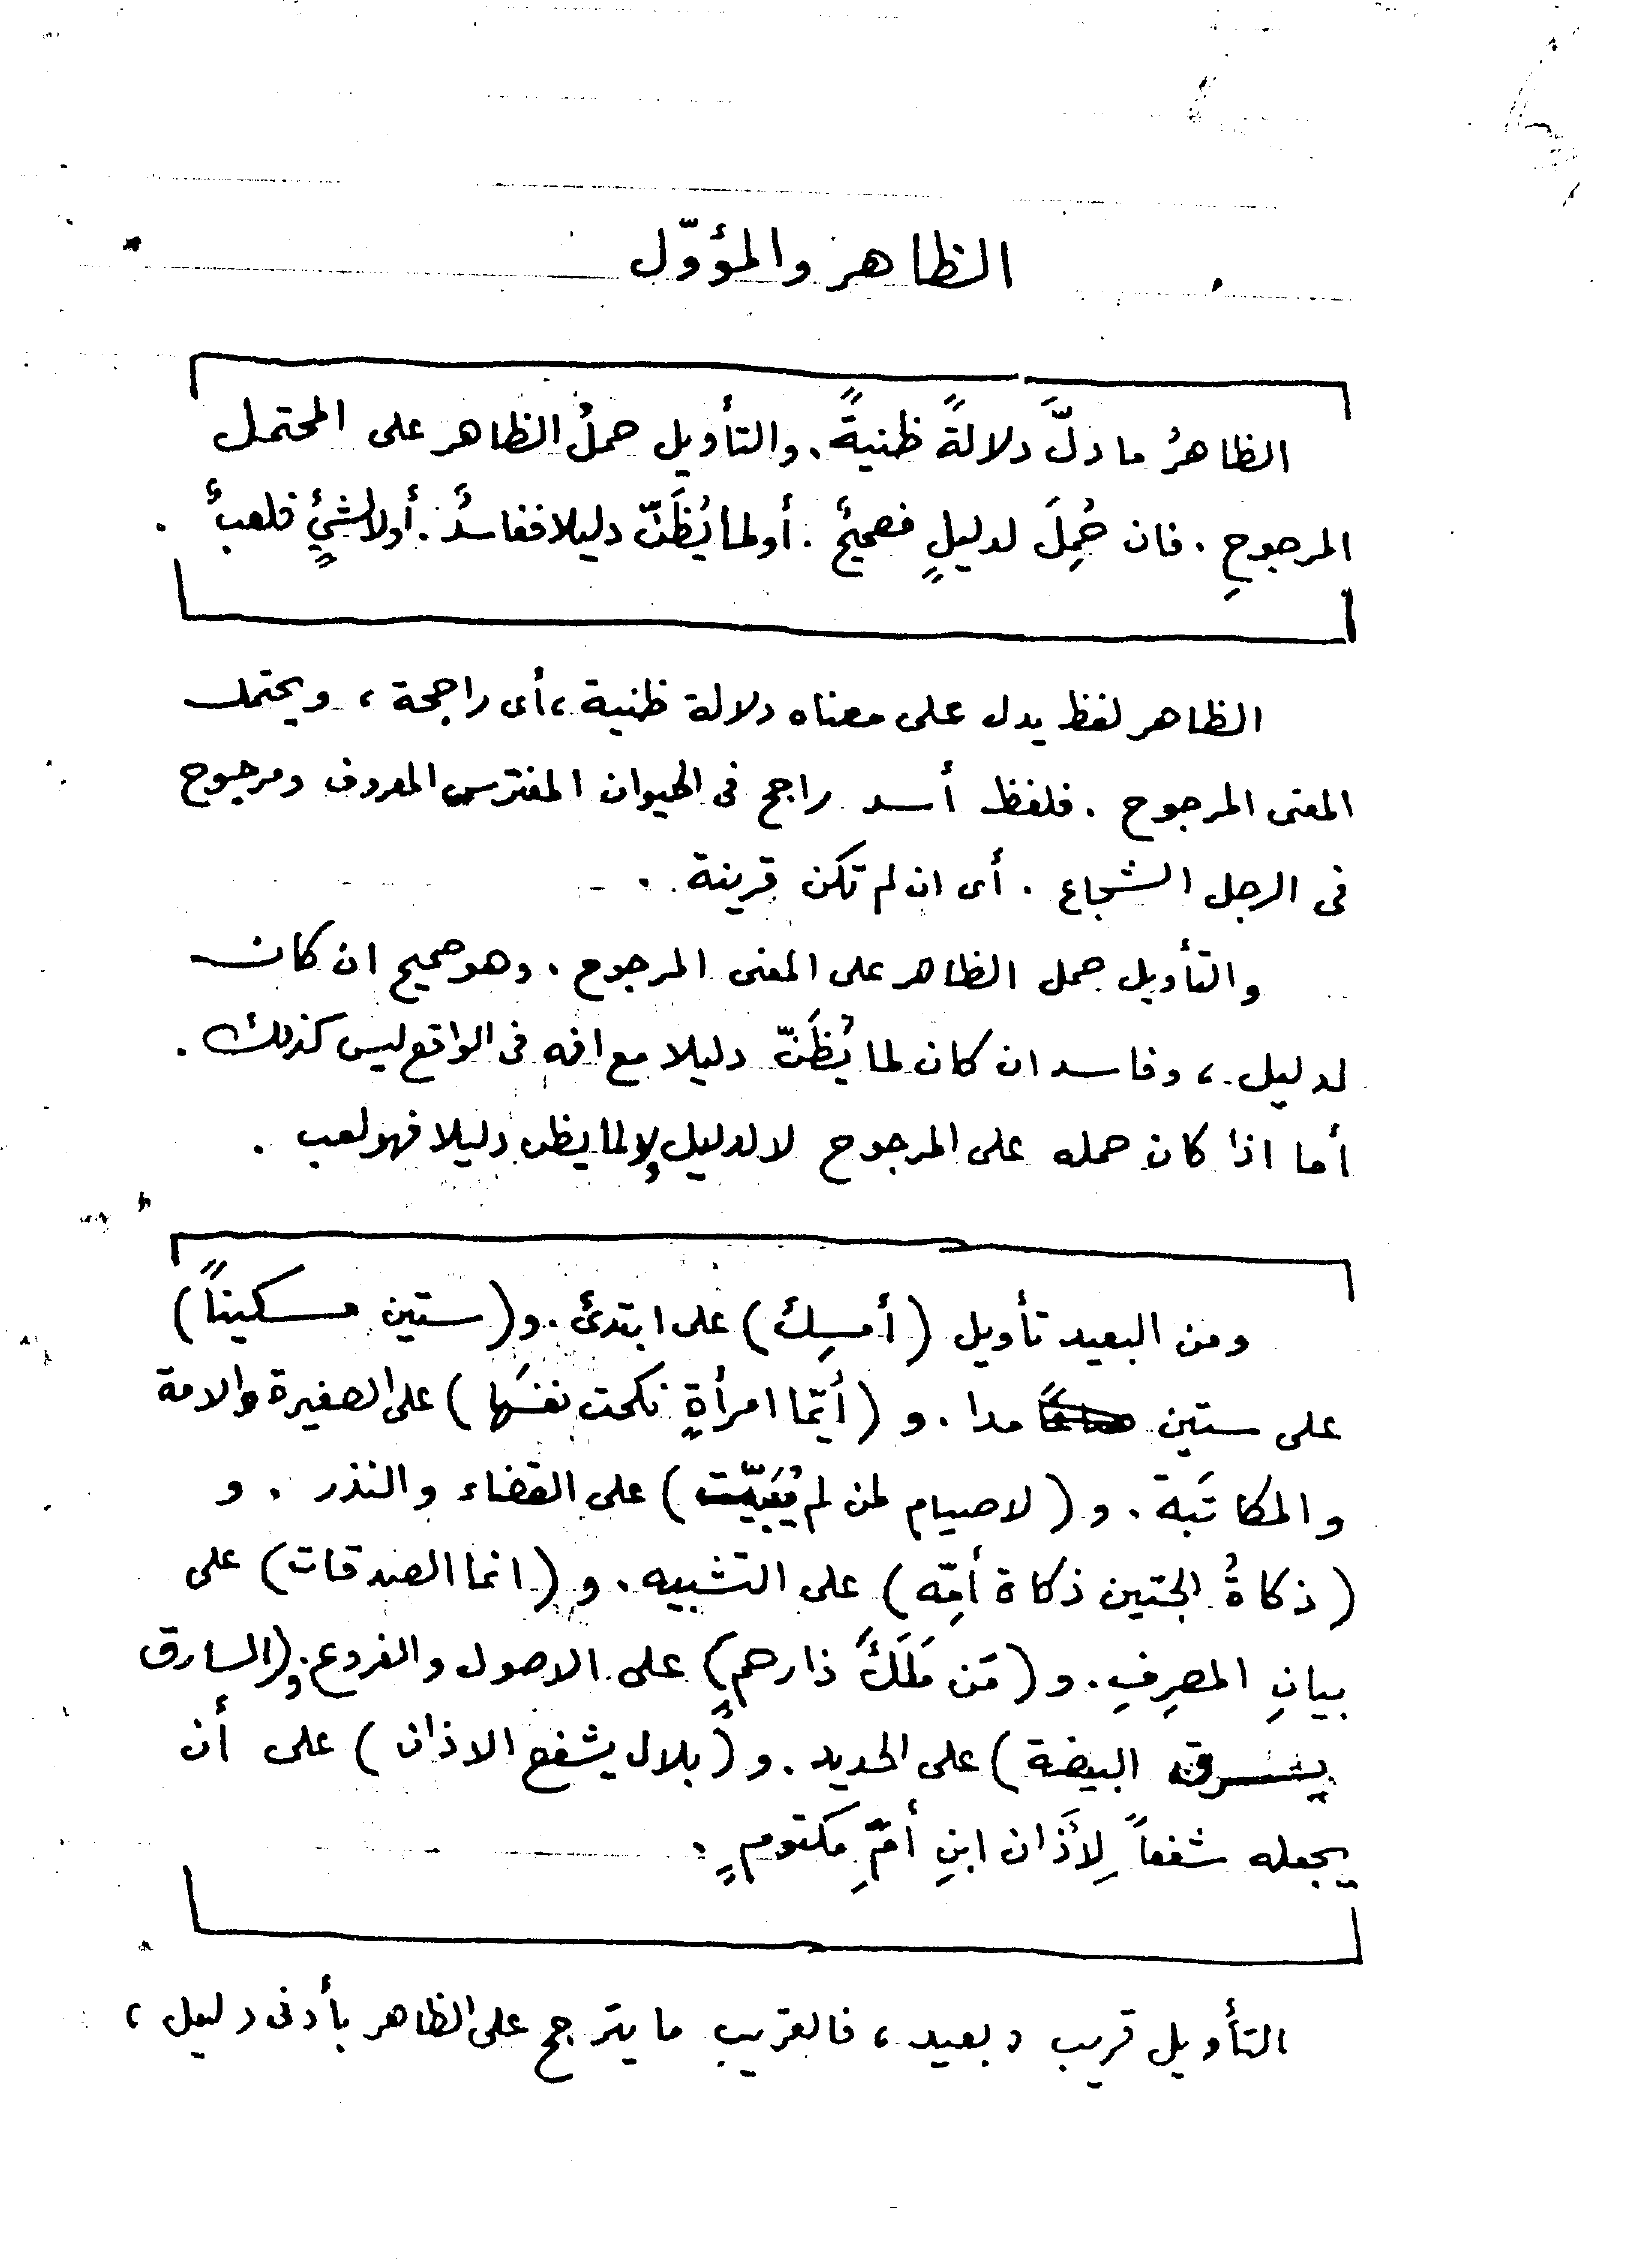 الظاهر والمؤوّل
الظاهرُ ما دلَّ دلالةً ظنيةً. والتأويل حملُ الظاهر على المحتمل
المرجوحِ. فان حُمِلَ لدليلٍ فصحيحٌ. أو لما يُظَنّ دليلا ففاسدٌ. أولا لشيءٍ فلعبٌ.
الظاهر لفظ يدل على معناه دلالة ظنية، أى راجحة، ويحتمل
المعنى المرجوح. فلفظ أسد راجح فى الحيوان المفترس المعروف ومرجوح
فى الرجل الشجاع. أى ان لم تكن قرينة.
والتأويل حمل الظاهر على المعنى المرجوح. وهو صحيح ان كان
لدليل، وفاسد ان كان لما يُظَنّ دليلا مع انه فى الواقع ليس كذلك.
أما اذا كان حمله على المرجوح لا لدليل ولا لما يظن دليلا فهو لعب.
ومن البعيد تأويل (أمسِك) على ابتدئ. و(ستين مسكيناً)
على ستين مدا. و (أيّما امرأةٍ نكحت نفسَها) على الصغيرة والامة
والمكاتَبة. و (لا صيام لمن لم يُبَيِّت) على القضاء والنذر. و
(ذكاةُ الجنين ذكاة أمِّه) على التشبيه. و (انما الصدقات) على
بيانِ المصرِفِ. و (مَن مَلَكَ ذا رحمٍ) على الاصول والفروع. و(السارق
يسرق البيضة) على الحديد. و (بلال يشفع الاذان) على أن
يجعله شفعاً لِأذان ابنِ أمِّ مكتومٍ.
التأويل قريب وبعيد، فالقريب ما يترجح على الظاهر بأدنى دليل،